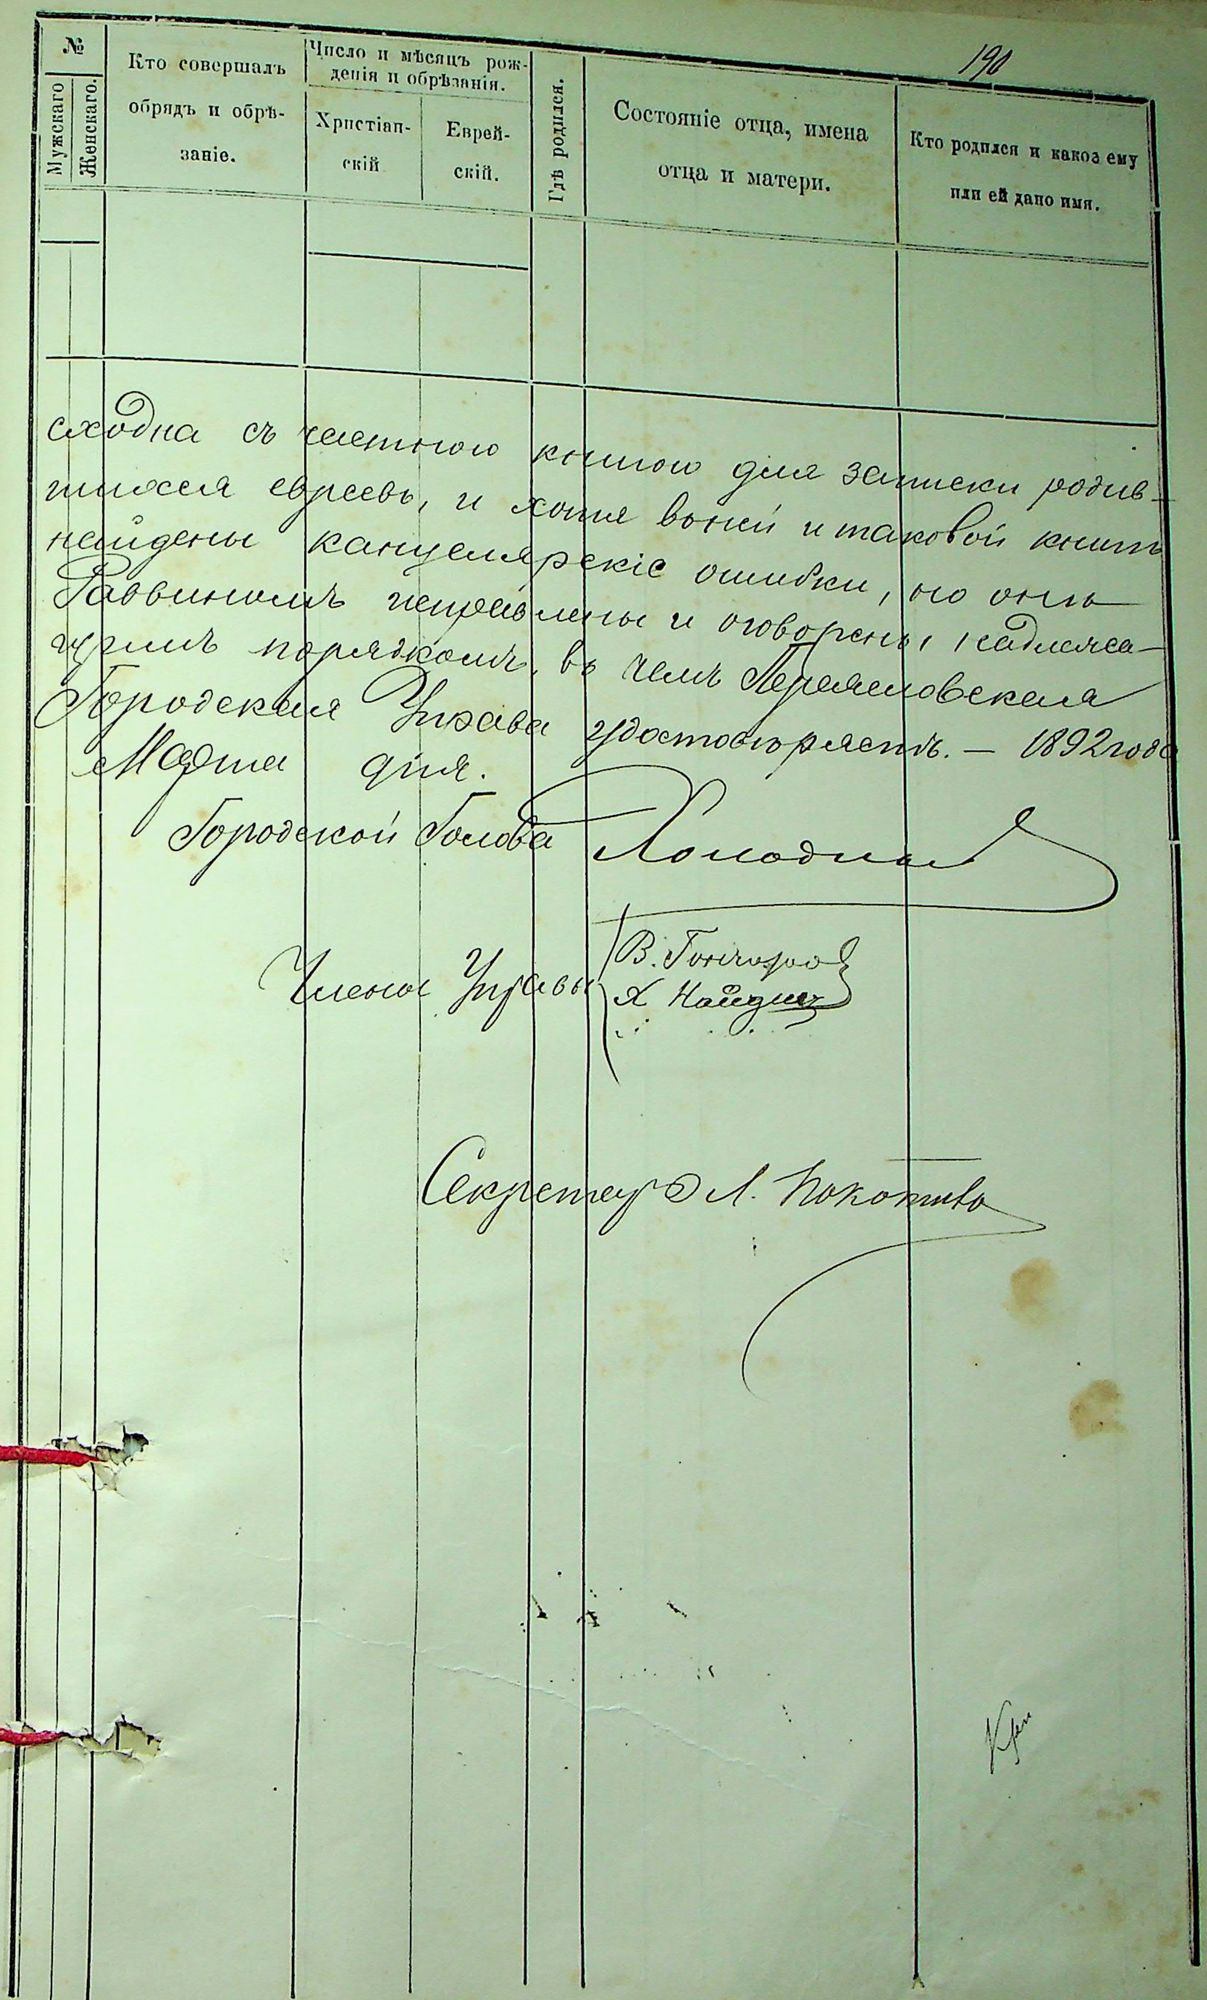 190
№
Мужскаго
Женскаго.
Кто совершалъ
обрядъ и обрѣ-
заніе.
Число и мѣсяцъ рож-
денія и обрѣзанія.
Христіан-
скій
Еврей-
скій.
Гдѣ родился.
Состояніе отца, имена
отца и матери.
Кто родился и какое ему
или ей дано имя.
сходна съ честною книгою для записки родив-
шихся евреевъ, и хотя въ ней и таковой книгѣ
найдены канцелярскіе ошибки, но онѣ
Раввиномъ исправлены и оговорены надлежа-
щимъ порядкомъ, въ чемъ Переяславская
Городская Управа удостовѣряетъ. — 1892 года
Марта дня.
Городской Голова
Члены Управы
В. Гончаров
Секретарь Л. Покотило